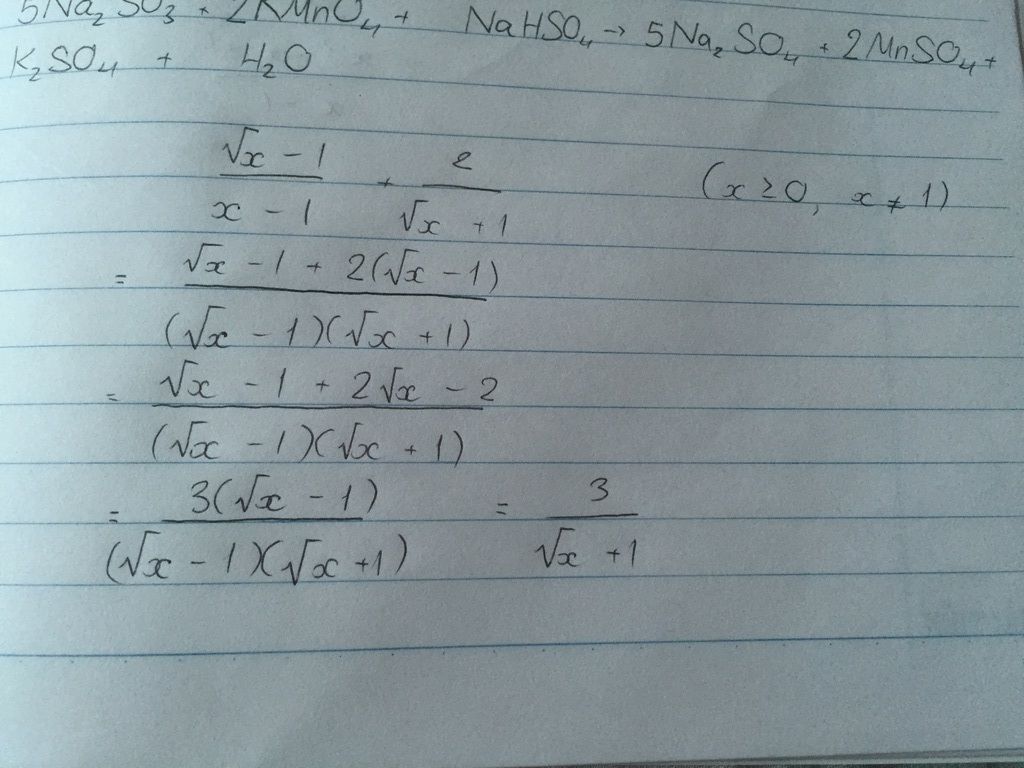 5Na₂SO₃ + 2KMnO₄ + NaHSO₄ → 5Na₂SO₄ + 2MnSO₄ +
K₂SO₄ + H₂O
(√x - 1)/(x - 1) + 2/(√x + 1) (x ≥ 0, x ≠ 1)
= (√x - 1 + 2(√x - 1))/((√x - 1)(√x + 1))
= (√x - 1 + 2√x - 2)/((√x - 1)(√x + 1))
= 3(√x - 1)/((√x - 1)(√x + 1)) = 3/(√x + 1)